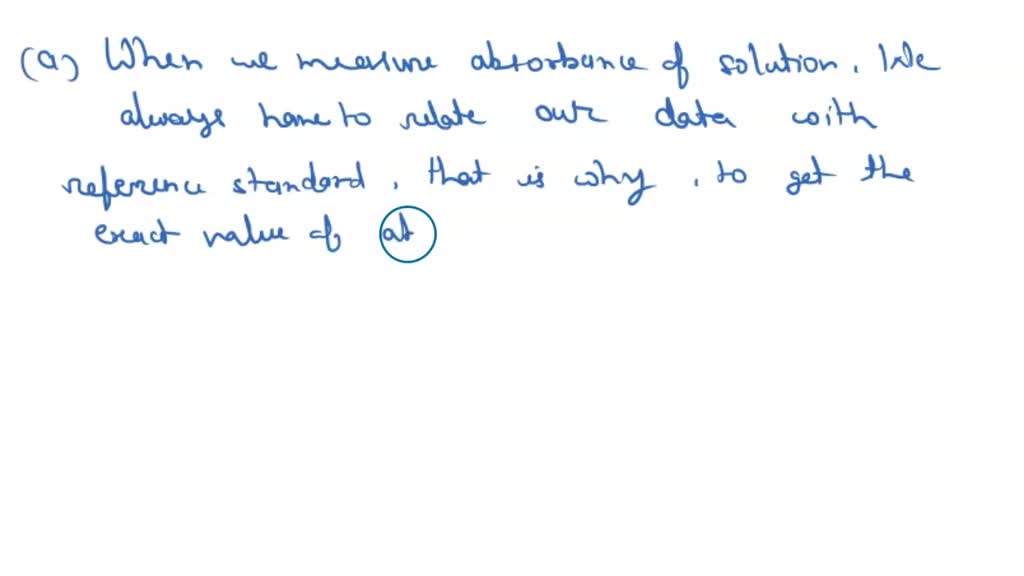 (a) When we measure absorbance of solution. We
always have to relate our data with
reference standard, that is why, to get the
exact value of ab